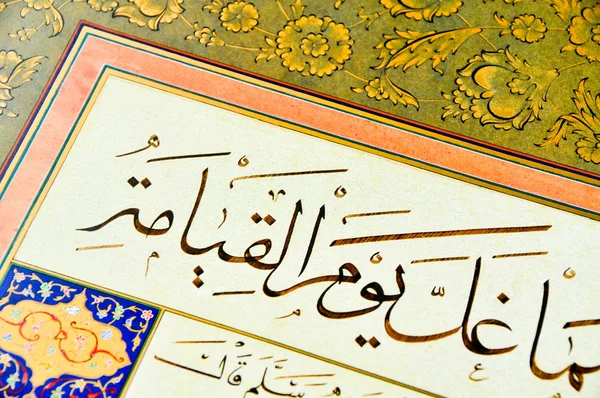 مَا غَلَّ يَوْمَ الْقِيَامَةِ
سَلَّمَ قَالَ